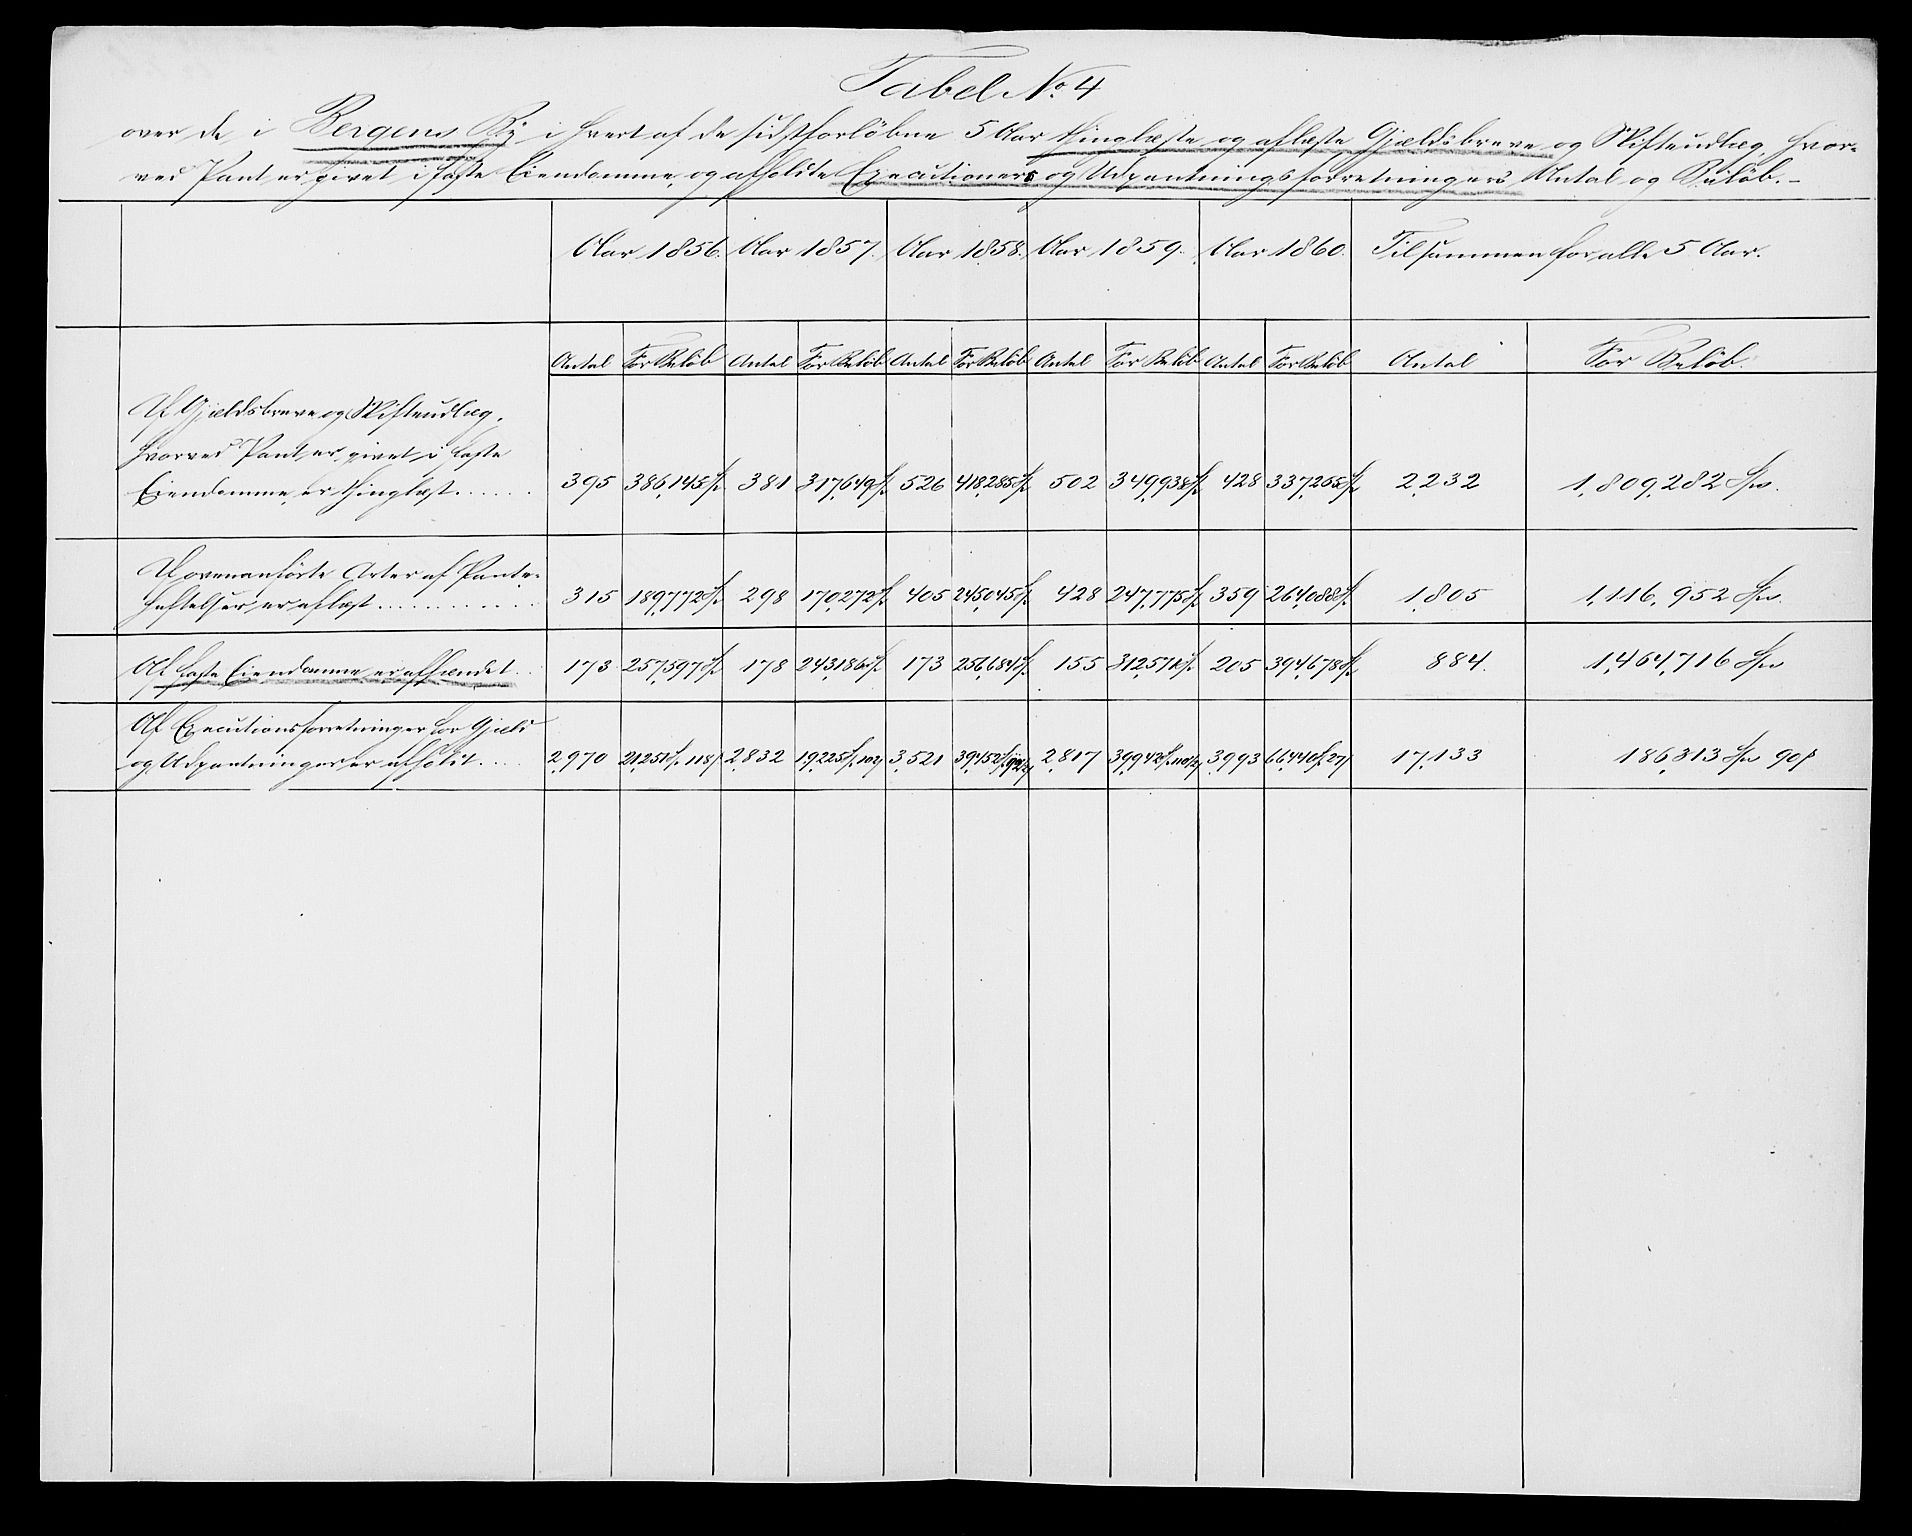 Tabel No. 4
over de i Bergens By i hvert af de sidstforløbne 5 Aar thinglæste og aflæste Gjældsbreve og Skifteudlæg, hvor-
ved Pant er givet i faste Eiendomme, og afholdte Executioners og Udpantningsforretningers Antal og Beløb.-
Aar 1856. Aar 1857. Aar 1858. Aar 1859. Aar 1860. Tilsammen for alle 5 Aar.
Antal For Beløb Antal For Beløb Antal For Beløb Antal For Beløb Antal For Beløb Antal For Beløb.
Af Gjældsbreve og Skifteudlæg,
hvorved Pant er givet i faste
Eiendomme, er thinglæst...... 395 386,145 Sp. 381 317,649 Sp. 526 418,285 Sp. 502 349,938 Sp. 428 337,265 Sp. 2,232 1,809,282 Spd.
Af ovenanførte Arter af Pante-
heftelser, er aflæst............ 315 189,772 Sp. 298 170,272 Sp. 405 245,045 Sp. 428 247,775 Sp. 359 264,088 Sp. 1,805 1,116,952 Spd.
Af faste Eiendomme er afhændet.. 173 257,597 Sp. 178 243,186 Sp. 173 256,684 Sp. 155 312,571 Sp. 205 394,678 Sp. 884. 1,464,716 Spd
Af Executionsforretninger for Gjæld
og Udpantninger er afholdt.... 2,970 21,251 Sp. 118 2,832 19,225 Sp. 102 3,521 39,452 Sp. 2,817 39,942 Sp. 3,993 66,440 Sp. 27 17,133 186,313 Spd 90 s